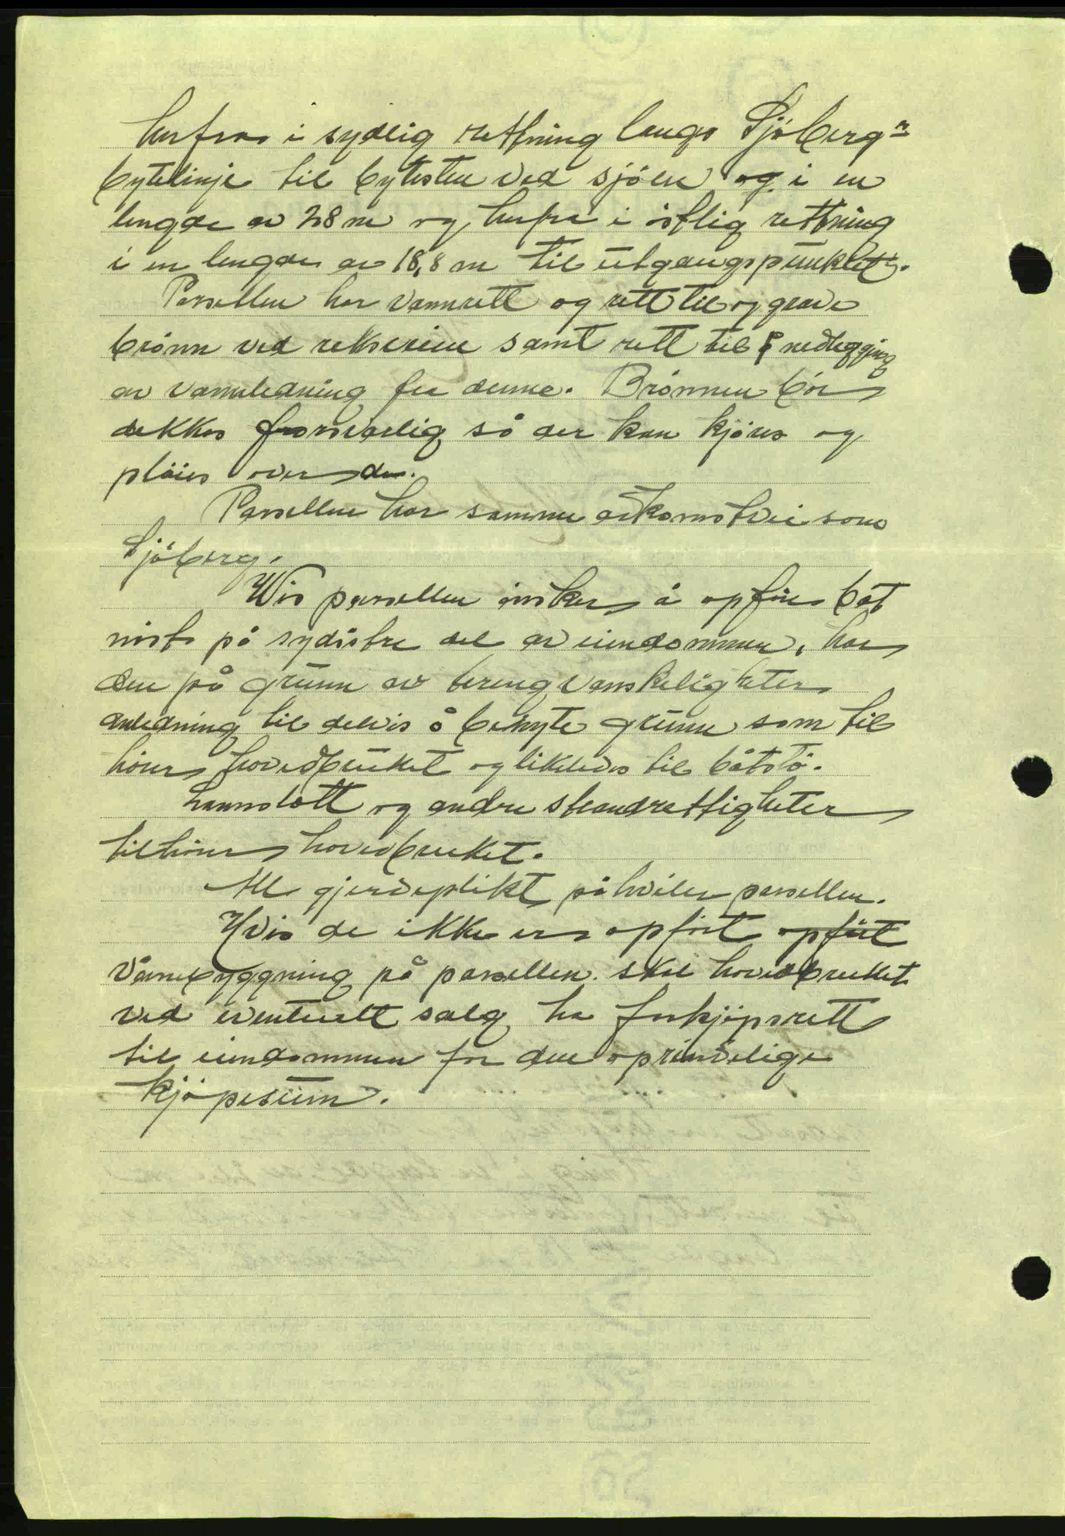 herfra i sydlig rettning langs Sjöbergs
bytelinje til bytesten ved sjöen og i en
lengde av 28 m og herfra i östlig rettning
i en lengde av 18,8 m til utgangspunktet.
Parsellen har vannrett og rett til og grave
brönn ved samt rett til nedlegging
av vannledning fra denne. Brönnen bör
dekkes forsvarlig så der kan kjöres og
plöies over den.
Parsellen har samme adkomstvei som
Sjöberg.
Hvis parsellen önsker å opföre båt
nöst på sydöstre del av eiendommen, har
den på grunn av terengvanskeligheter
anledning til delvis å benyte grunn som til
hörer hovedbruket og likeledes til båtstö.
Lannslott og andre strandrettigheter
tilhörer hovedbruket.
All gjerdeplikt påhviler parsellen.
Hvis de ikke er opfört opfört
våningbyggning på parsellen skal hovedbruket
ved eventuelt salg ha forkjöpsrett
til eiendommen for den oprindelige
kjöpesum.